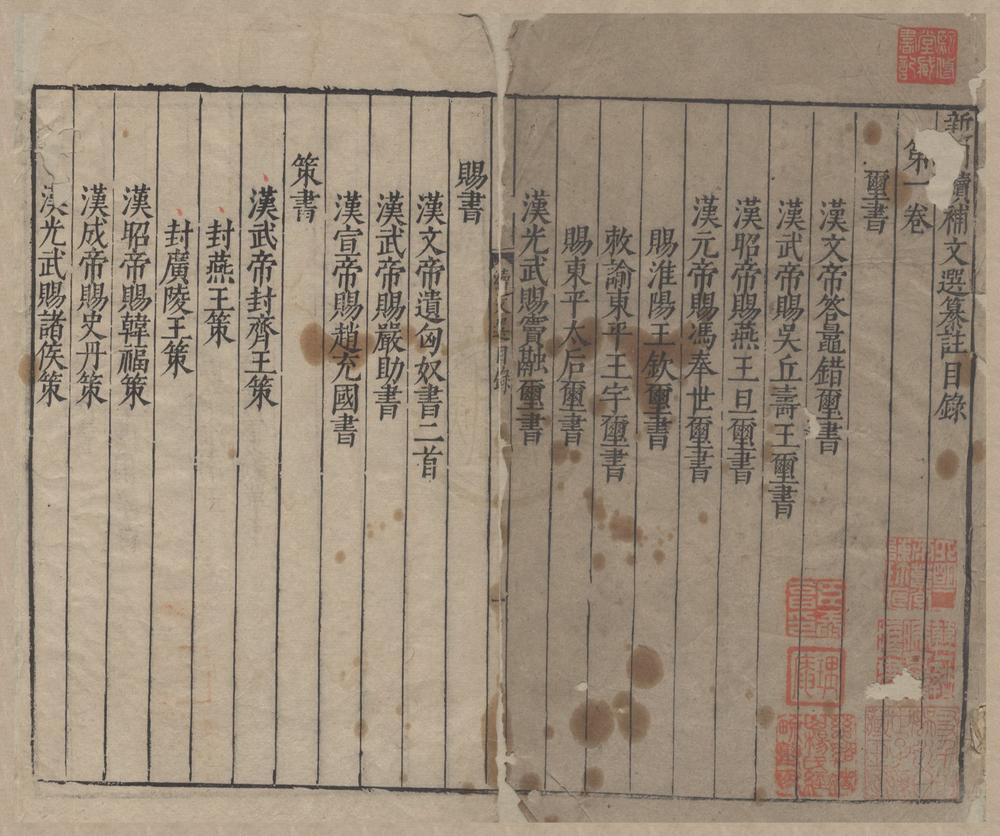 新刊續補文選纂註目錄
第一卷
璽書
漢文帝答鼂錯璽書
漢武帝賜吳丘壽王璽書
漢昭帝賜燕王旦璽書
漢元帝賜馮奉世璽書
賜淮陽王欽璽書
敕諭東平王宇璽書
賜東平太后璽書
漢光武賜竇融璽書
續文選目錄
一
賜書
漢文帝遺匈奴書二首
漢武帝賜嚴助書
漢宣帝賜趙充國書
策書
漢武帝封齊王策
封燕王策
封廣陵王策
漢昭帝賜韓福策
漢成帝賜史丹策
漢光武賜諸侯策